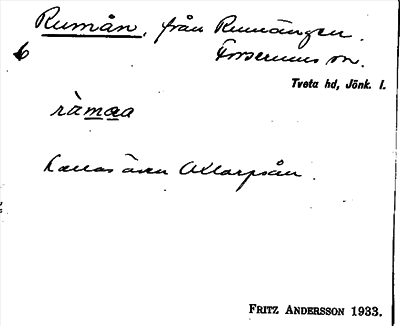 Rumån, från Rumängen.
Forserums sn.
Tveta hd, Jönk. l.
ràmaa
Kallas även Ollarpsån.
FRITZ ANDERSSON 1933.